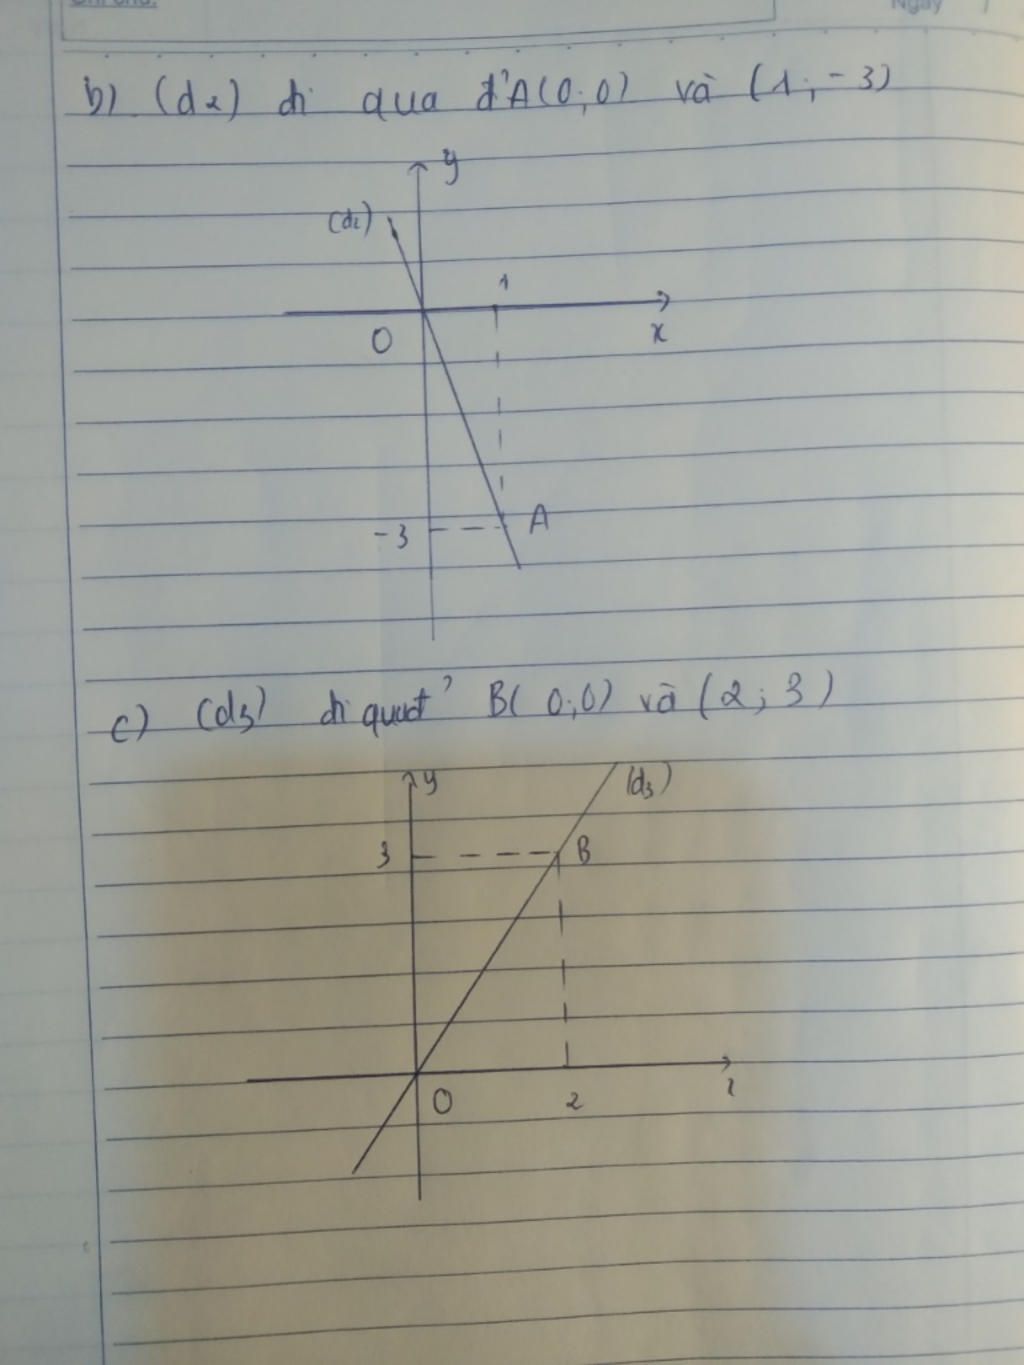 Ngày
b) (d2) đi qua đ' A(0;0) và (1;-3)
y
(d2)
1
O
x
-3
A
c) (d3) đi qua đ' B(0;0) và (2;3)
y
(d3)
3
B
O
2
x